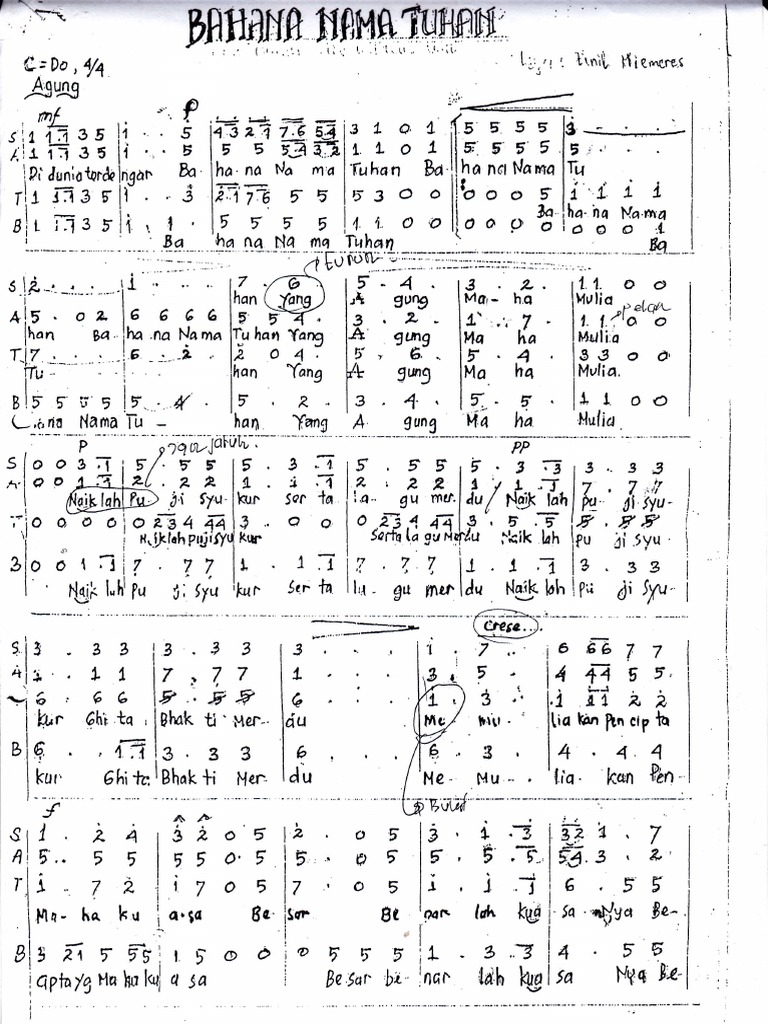 BAHANA NAMA TUHAN
C = Do, 4/4
Agung
mf p
S 1 1.1 3 5 | 1 . . 5 | 4 3 2 1 7.6 5 4 | 3 1 0 1 | 5 5 5 5 | 3 . . .
1 1.1 3 5 | 1 . . 5 | 5 5 5 4 3 2 | 1 1 0 1 | 5 5 5 5 | 5 . . .
Di dunia terdengar Ba- ha-na Na ma Tuhan Ba hana Nama Tu
T 1 1.1 3 5 | 1 . . 3 | 2.1 7.6 5 5 | 5 3 0 0 | 0 0 0 5 | 1 1 1 1
Ba- ha-na Nama
B 1 1.1 3 5 | 1 . 1 . | 5 5 5 5 | 1 1 0 0 | 0 0 0 0 | 0 0 0 1
Ba ha na Na ma Tuhan Ba
turun
S 2 . . . | 1 . . . | 7 . 6 . | 5 . 4 . | 3 . 2 . | 1 1 0 0
han Yang A gung Ma-ha Mulia
A 5 . 0 2 | 6 6 6 6 | 5 5 4 . | 3 . 2 . | 1 . 7 . | 1 1 . 0 0
han Ba- ha.na Nama Tuhan Yang A gung Ma ha Mulia
T 7 . . . | 6 . 2 . | 2 0 4 . | 5 . 6 . | 5 . 4 . | 3 3 0 0
Tu han Yang A gung Ma ha Mulia.
B 5 5 5 5 | 5 . 4 . | 5 . 2 . | 3 . 4 . | 5 . 5 . | 1 1 0 0
Nama Tu - han Yang A gung Ma ha Mulia
P pp
S 0 0 3 .1 | 5 . 5 5 | 5 . 3 .1 | 5 . 5 5 | 5 . 3 .3 | 3 . 3 3
A 0 0 1 .1 | 2 . 2 2 | 1 . 1 .1 | 2 . 2 2 | 1 . 1 .1 | 7 . 7 7
Naik lah Pu ji Syu- kur Ser ta la- gu mer. du Naik lah pu- ji Syu-
T 0 0 0 0 | 0 2 3 4 4 4 | 3 . 0 0 | 0 2 3 4 4 4 | 3 . 5 .5 | 5 . 5 5
Naiklah puji Syu kur Serta la gu Merdu Naik loh pu ji Syu-
B 0 0 1 .1 | 7 . 7 7 | 1 . 1 .1 | 7 . 7 7 | 1 . 1 .1 | 3 . 3 3
Naik lah Pu ji Syu kur Ser ta la- gu mer du Naik lah Pu ji Syu-
Cresc...
S 3 . 3 3 | 3 . 3 3 | 3 . . . | 1 . 7 . | 6 6 6 7 7
A 1 . 1 1 | 7 . 7 7 | 1 . . . | 3 . 5 . | 4 4 4 5 5
6 . 6 6 | 5 . 5 5 | 6 . . . | 1 . 3 . | 1 1 1 2 2
kur Ghi ta Bhak ti Mer- du Me mu- lia kan Pen cip ta
B 6 . . 1 1 | 3 . 3 3 | 6 . . . | 6 . 3 . | 4 . 4 4
kur Ghi ta Bhak ti Mer du Me- Mu - lia- kan Pen-
Bulat
f
S 1 . 2 4 | 3 2 0 5 | 2 . 0 5 | 3 . 1 .3 | 3 2 1 . 7
A 5 . . 5 5 | 5 5 0 5 | 5 . 0 5 | 5 . 5 .5 | 5 4 3 . 2
T 1 . 7 2 | 1 7 0 5 | 7 . 0 5 | 1 . 1 .1 | 6 . 5 5
Ma- ha ku a-sa Be- sar Be nar lah kua sa- Nya Be-
B 3 2 1 5 5 5 | 1 5 0 0 | 0 5 5 5 | 1 . 3 .3 | 4 . 5 5
cipta yg Maha ku a sa Besar be- nar lah kua sa Nya Be-